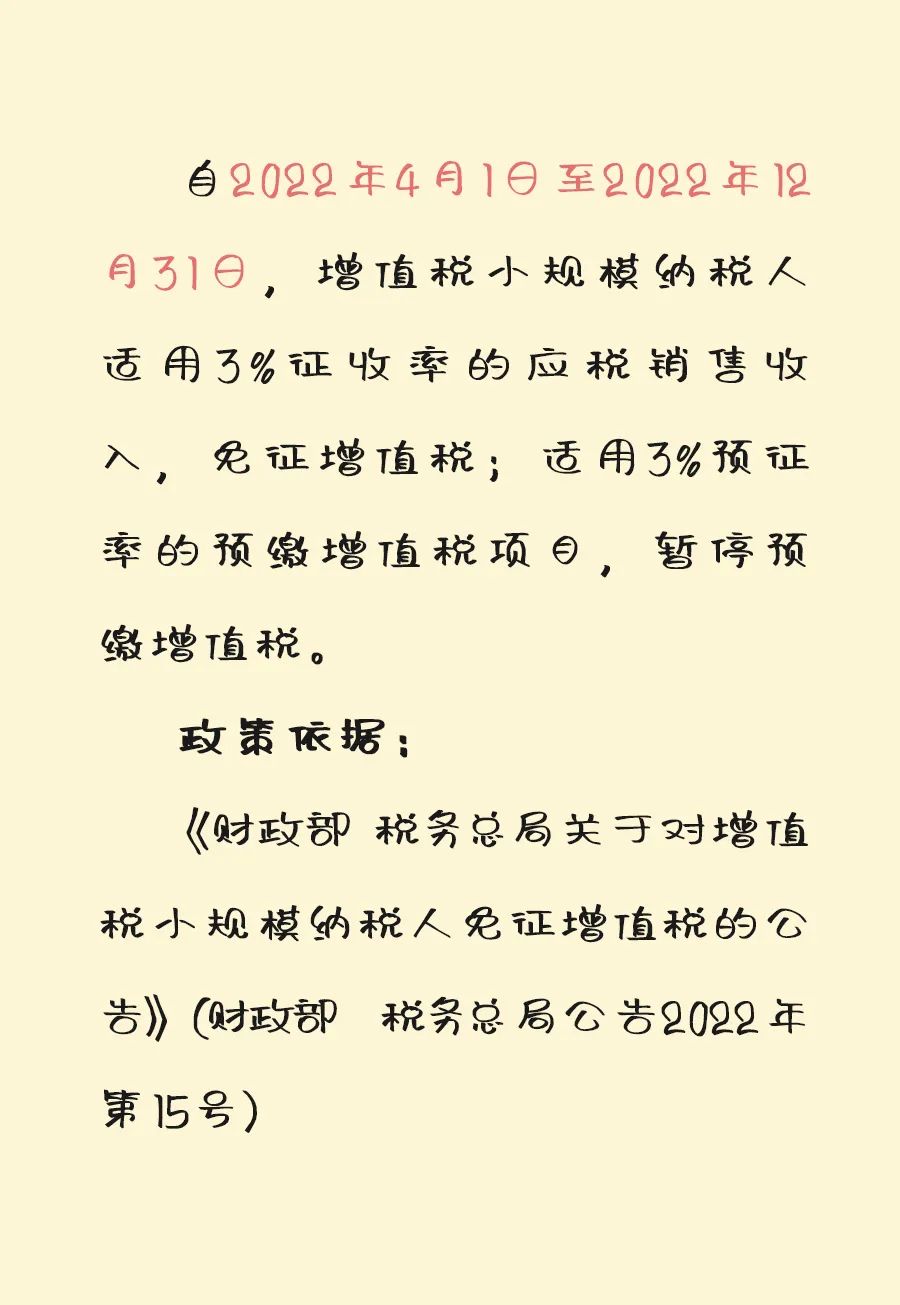 自2022年4月1日至2022年12
月31日，增值税小规模纳税人
适用3%征收率的应税销售收
入，免征增值税；适用3%预征
率的预缴增值税项目，暂停预
缴增值税。
政策依据：
《财政部 税务总局关于对增值
税小规模纳税人免征增值税的公
告》(财政部 税务总局公告2022年
第15号)